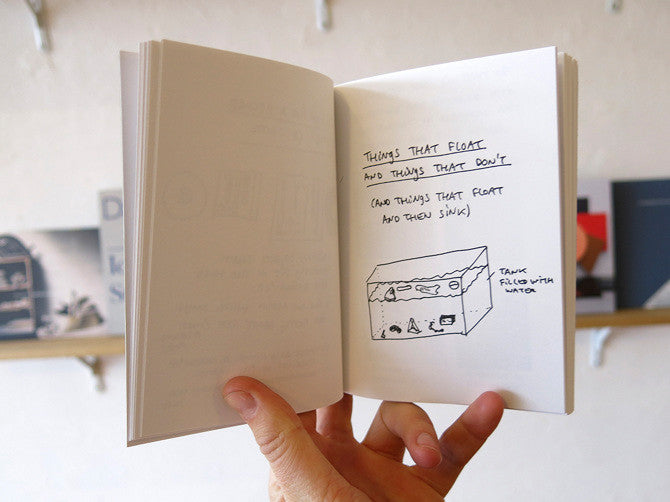 THiNgS THAT FLOAT
AND THiNgS THAT DON'T
(AND THiNgS THAT FLOAT
AND THEN SiNK)
TANK
FiLLED WiTH
WATER